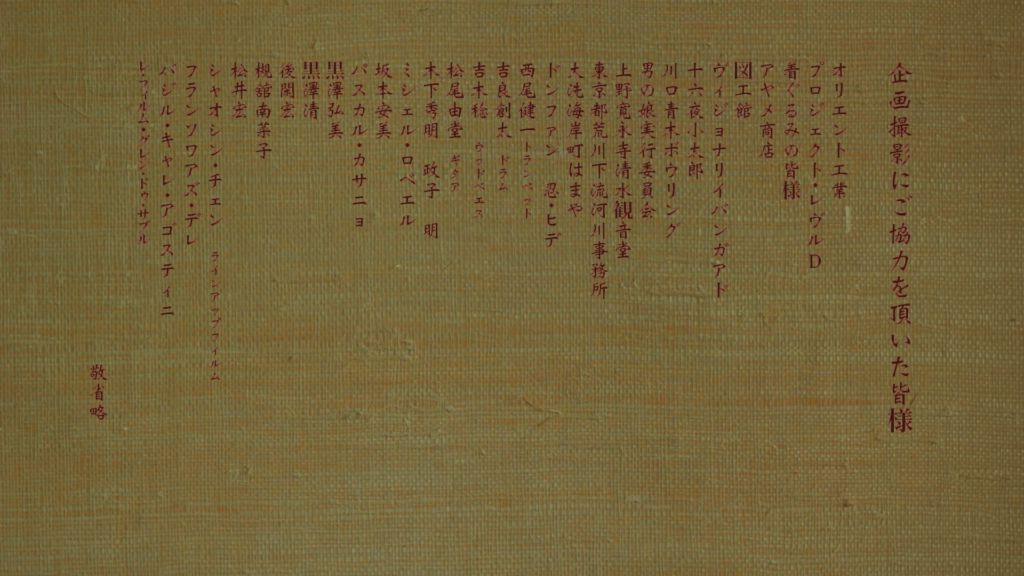 企画撮影にご協力を頂いた皆様
オリエント工業
プロジェクト・レヴルD
着ぐるみの皆様
アヤメ商店
図工館
ヴィジョナリイバンガアド
十六夜小太郎
川口青木ボウリング
男の娘実行委員会
上野寛永寺清水観音堂
東京都荒川下流河川事務所
大洗海岸町はまや
ドンファン 忍・ヒデ
西尾健一 トランペット
吉良創太 ドラム
吉木稔 ウッドベエス
松尾由堂 ギタア
木下秀明 政子 明
ミシェル・ロベエル
坂本安美
パスカル・カサニョ
黒澤弘美
黒澤清
後関宏
槻舘南菜子
松井宏
シャオシン・チェン ラインアップフィルム
フランソワアズ・デレ
バジル・キャレ・アゴスティニ
レ・フィルム・ヴレン・ドゥ・サブル
敬省略